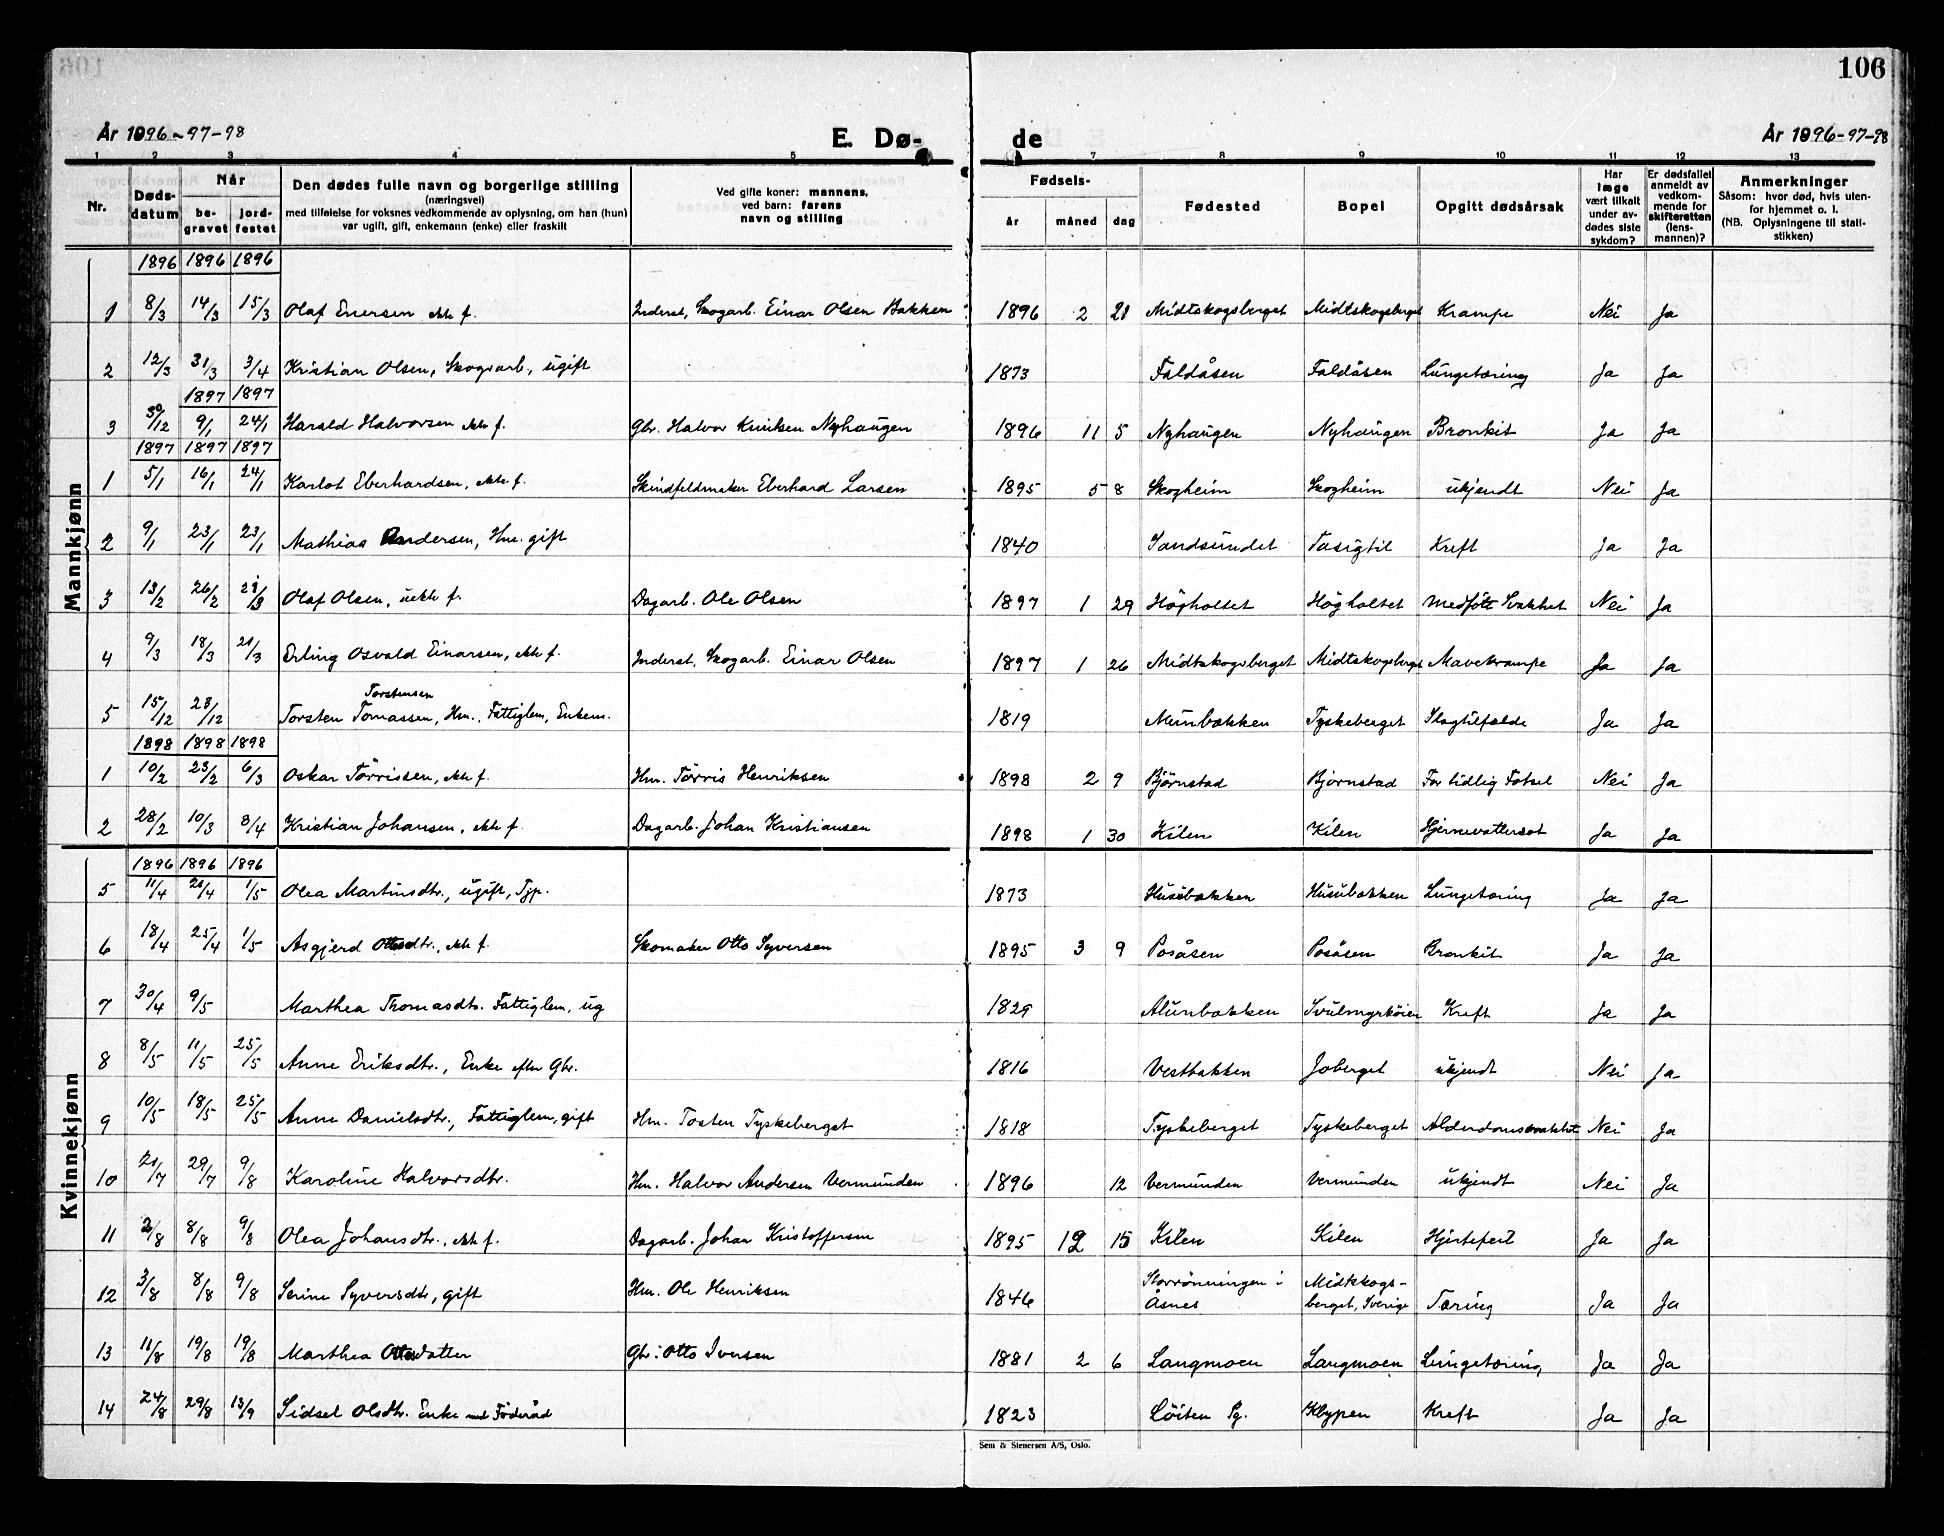 106
År 1896-97-98
E. Dø- de
År 1896-97-98
1 2 3 4 5 7 8 9 10 11 12 13
Nr. Døds-datum Når be-gravet jord-festet Den dødes fulle navn og borgerlige stilling (næringsvei) med tilføielse for voksnes vedkommende av oplysning, om han (hun) var ugift, gift, enkemann (enke) eller fraskilt Ved gifte koner: mannens, ved barn: farens navn og stilling Fødsels- år måned dag Fødested Bopel Opgitt dødsårsak Har læge vært tilkalt under av-dødes siste sykdom? Er dødsfallet anmeldt av vedkom-mende for skifteretten (lens-mannen)? Anmerkninger Såsom: hvor død, hvis uten-for hjemmet o. l. (NB. Oplysningene til stati-stikken)
Mannkjønn
1896 1896 1896
1 8/3 14/3 15/3 Olaf Enersen ekte f. Inderst, Skogarb. Einar Olsen Bakken 1896 2 28 Midtskogsberget Midtskogsberget Krampe Nei Ja
2 12/3 31/3 3/4 Kristian Olsen, Skogarb., ugift 1873 Faldåsen Faldåsen Lungetæring Ja Ja
1897 1897
3 30/12 9/1 24/1 Harald Halvorsen ekte f. Gbr. Halvor Knutsen Nyhaugen 1896 11 5 Nyhaugen Nyhaugen Bronkit Ja Ja
1897 1897 1897
1 5/1 16/1 24/1 Karlot Eberhardsen, ekte f. Skindfeldmaker Eberhard Larsen 1895 5 8 Skogheim Skogheim ukjendt Nei Ja
2 9/1 23/1 23/1 Mathias Andersen, Hm. gift 1840 Sandsundet Tasigtil Kreft Ja Ja
3 13/2 26/2 28/3 Olaf Olsen, uekte f. Dagarb. Ole Olsen 1897 1 29 Högholtet Högholtet Medfött Svakhet Nei Ja
4 9/3 18/3 21/3 Erling Osvald Einarsen, ekte f. Inderst, Skogarb. Einar Olsen 1897 1 26 Midtskogsberget Midtskogsberget Mavekrampe Ja Ja
Torstensen
5 15/12 28/12 Torsten Tomassen, Hm., Fattiglem, Enkem. 1819 Munbakken Tyskeberget Slagtilfælde Ja Ja
1898 1898 1898
1 10/2 23/2 6/3 Oskar Törrissen, ekte f. Hm. Törris Henriksen 1898 2 9 Bjørnstad Bjørnstad For tidlig Fötsel Nei Ja
2 28/2 10/3 8/4 Kristian Johansen, ekte f. Dagarb. Johan Kristiansen 1898 1 30 Kilen Kilen Hjernevattersot Ja Ja
Kvinnekjønn
1896 1896 1896
5 11/4 21/4 1/5 Olea Martinsdtr., ugift, Tjp. 1873 Husubakken Husubakken Lungetæring Ja Ja
6 18/4 25/4 1/5 Asgjerd Ottosdtr., ekte f. Skomaker Otto Syversen 1895 3 9 Posåsen Posåsen Bronkit Ja Ja
7 30/4 9/5 Marthea Thomasdtr. Fattiglem, ug 1829 Alunbakken Svulmyrkøien Kreft Ja Ja
8 8/5 11/5 25/5 Anne Eriksdtr., Enke efter Gbr. 1816 Vestbakken Joberget ukjendt Nei Ja
9 10/5 18/5 25/5 Anne Danielsdtr., Fattiglem, gift Hm. Tosten Tyskeberget 1818 Tyskeberget Tyskeberget Alderdomssvakhet Nei Ja
10 21/7 29/7 9/8 Karoline Halvorsdtr. Hm. Halvor Andersen Vermunden 1896 12 Vermunden Vermunden ukjendt Nei Ja
11 2/8 8/8 9/8 Olea Johansdtr., ekte f. Dagarb. Johan Kristoffersen 1895 12 15 Kilen Kilen Hjertefeil Ja Ja
12 3/8 8/8 9/8 Serine Syversdtr, gift Hm. Ole Henriksen 1846 Storrönningen i Åsnes Midtskogs-berget, Sverige Tæring Ja Ja
13 11/8 19/8 19/8 Marthea Ottosdatter Gbr: Otto Iversen 1881 2 6 Langmoen Langmoen Lungetæring Ja Ja
14 24/8 29/8 13/9 Sidsel Olsdtr. Enke med Föderåd 1823 Löiten Pg. Klypen Kreft Ja Ja
Sem & Stenersen A/S, Oslo.